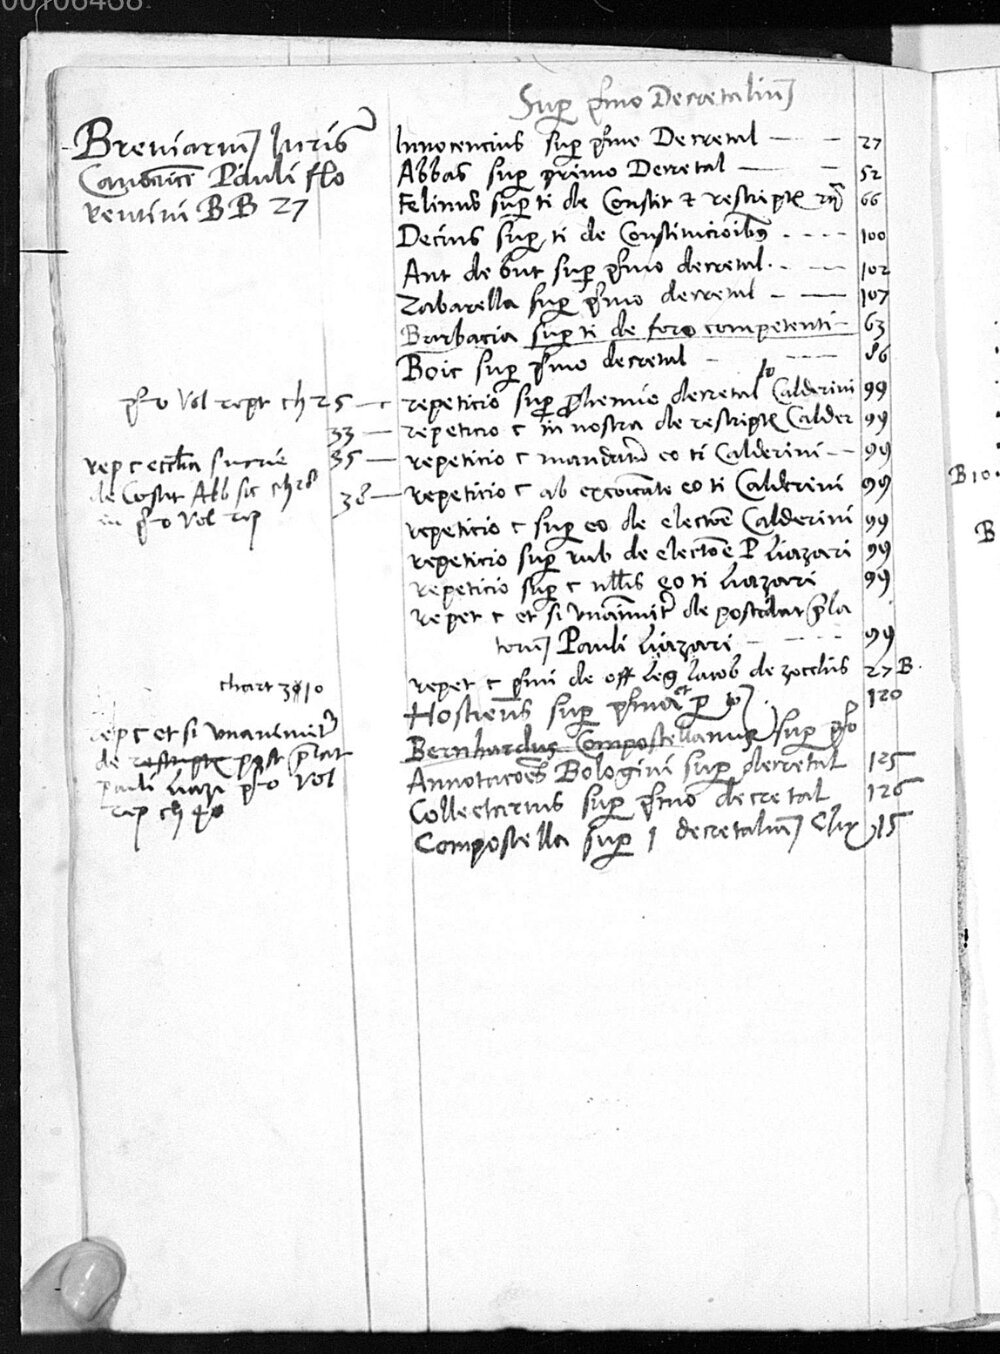 00106438
Sup p̱imo Decretaliu͂
Breviarium Iuris
Canonici Pauli flo
rentini BB 27
Innocencius sup p̱mo Decretal — — 27
Abbas sup primo Decretal — — 52
Felinus sup ti de Constit & rescriptis 66
Decius sup ti de Constitucionibus - - - - 100
Ant de but sup p̱mo decretal - — 102
Zabarella sup p̱mo decretal - — 107
Barbacia sup ti de foro competenti — 63
Boic sup p̱mo decretal - - - - - 86
p̱o Vol rept ch 25 — repeticio sup prohemio decretal Io Calderini 99
33 — repeticio c in nostra de rescript Calder 99
35 — repeticio c mandatu͂ eo ti Calderini — 99
rep c ecclia
de Costit Abb sic ch 28
in p̱o Vol rep
38 — repeticio c ab excoicate eo ti Calderini 99
repeticio c sup eo de electoe͂ Calderini 99
repeticio sup rub de electoe͂ P Liazari 99
repeticio sup c nllis eo ti Liazari 99
repet c et si unanimit de postulat p̱la
toru͂ Pauli Liazari - - - - - 99
chart 10
repet c p̱mi de off leg Iacob de zocchis 27 B.
Hostiensis sup p̱mo et 120
rep c et si unanimit
de rescript post p̱lat
pauli Liazi p̱o Vol
rep ch 40
Bernhardus Compostellanus sup p̱o
Annotacoe͂s Bologini sup decretal 125
Collectarius sup p̱mo decretal 126
Compostella sup 1 decretaliu͂ 15
B 10
B